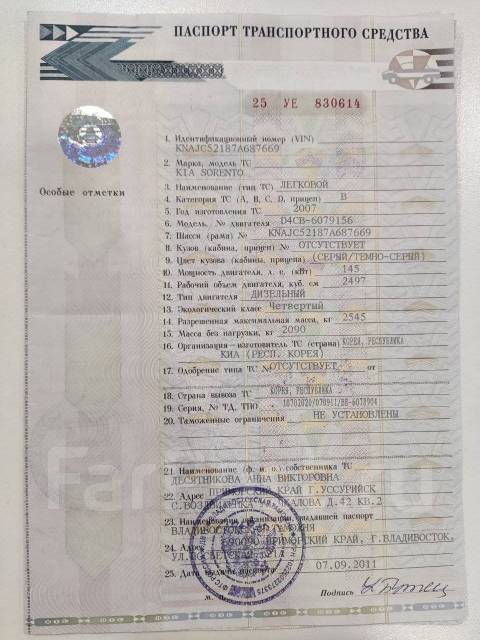 ПАСПОРТ ТРАНСПОРТНОГО СРЕДСТВА
25 УЕ 830614
Особые отметки
1. Идентификационный номер (VIN)
KNAJC52187A687669
2. Марка, модель ТС
KIA SORENTO
3. Наименование (тип ТС) ЛЕГКОВОЙ
4. Категория ТС (А, В, С, D, прицеп) В
5. Год изготовления ТС 2007
6. Модель, № двигателя D4CB-6079156
7. Шасси (рама) № KNAJC52187A687669
8. Кузов (кабина, прицеп) № ОТСУТСТВУЕТ
9. Цвет кузова (кабины, прицепа) (СЕРЫЙ/ТЕМНО-СЕРЫЙ)
10. Мощность двигателя, л. с. (кВт) 145
11. Рабочий объем двигателя, куб. см 2497
12. Тип двигателя ДИЗЕЛЬНЫЙ
13. Экологический класс Четвертый
14. Разрешенная максимальная масса, кг 2545
15. Масса без нагрузки, кг 2090
16. Организация—изготовитель ТС (страна) КОРЕЯ, РЕСПУБЛИКА
КИА (РЕСП. КОРЕЯ)
17. Одобрение типа ТС № ОТСУТСТВУЕТ от
18. Страна вывоза ТС КОРЕЯ, РЕСПУБЛИКА
19. Серия, № ТД, ТПО 10702020/070911/ВВ-6078904
20. Таможенные ограничения НЕ УСТАНОВЛЕНЫ
21. Наименование (ф. и. о.) собственника ТС
ДЕСЯТНИКОВА АННА ВИКТОРОВНА
22. Адрес КРАЙ Г.УССУРИЙСК
Д.42 КВ.2
23. Наименование организации, выдавшей паспорт
24. Адрес ПРИМОРСКИЙ КРАЙ, Г.ВЛАДИВОСТОК,
25. Дата выдачи паспорта 07.09.2011
М. П. Подпись